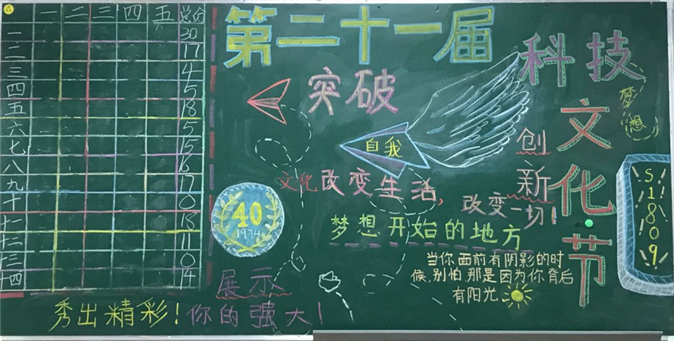 一 二 三 四 五 总分
一 20
二 17
三 4
四 5
五 18
六 5
七 15
八 6
九 17
十 0
十一 13
十二 11
十三 0
十四 4
第二十一届
科技
文化节
突破
自我
创新
梦想
文化改变生活,
改变一切!
40
1974
梦想开始的地方
S1809
当你面前有阴影的时
候,别怕,那是因为你背后
有阳光
展示
秀出精彩!你的强大!